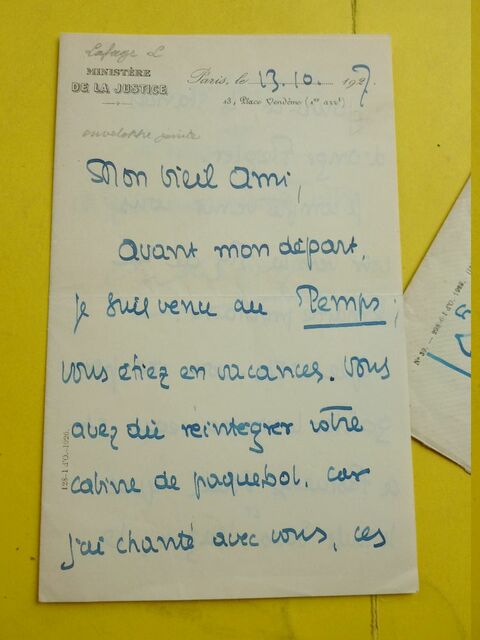 Lafage L
MINISTÈRE
DE LA JUSTICE
Paris, le 13.10. 1927
13, Place Vendôme (1er arrt)
enveloppe jointe
Mon vieil Ami,
Avant mon départ,
je suis venu au Temps ;
vous étiez en vacances. Vous
avez dû réintégrer votre
cabine de paquebot, car
j'ai chanté avec vous, ces
128-1 J.O.-1926.